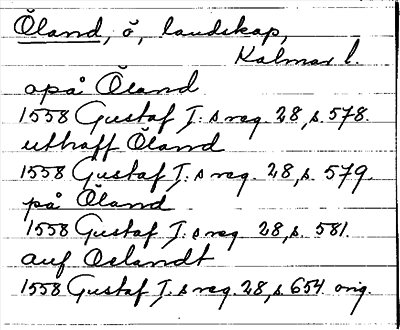 Öland, ö, landskap,
Kalmar l.
opå Öland
1558 Gustaf I:s reg. 28, s. 578.
uthaff Öland
1558 Gustaf I:s reg. 28, s. 579.
på Öland
1558 Gustaf I:s reg. 28, s. 581.
auf Oelandt
1558 Gustaf I:s reg. 28, s. 654 orig.